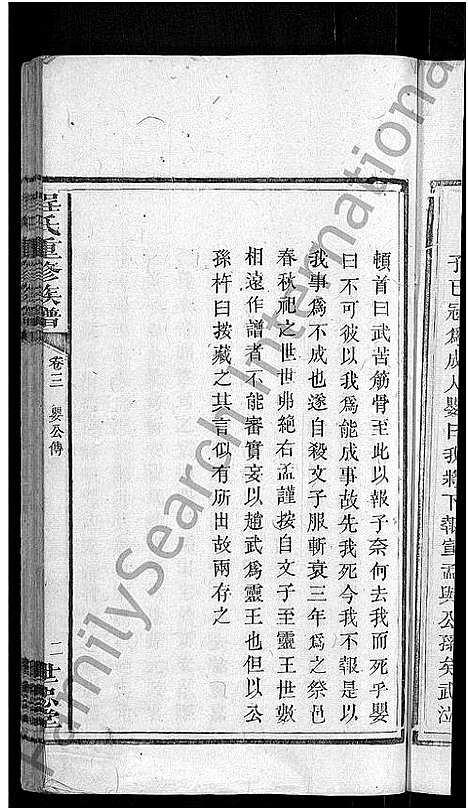 子已冠爲成人嬰曰我將下報宣孟與公孫矣武泣
頓首曰武苦筋骨至此以報子奈何去我而死乎嬰
曰不可彼以我爲能成事故先我死今我不報是以
我事爲不成也遂自殺文子服斬衰三年爲之祭邑
春秋祀之世世弗絕右孟謹按自文子至靈王世數
相遠作譜者不能審實妄以趙武爲靈王也但以公
孫杵臼按藏之其言似有所出故兩存之
程氏重修族譜
卷三
嬰公傳
二
世忠堂
FamilySearch International